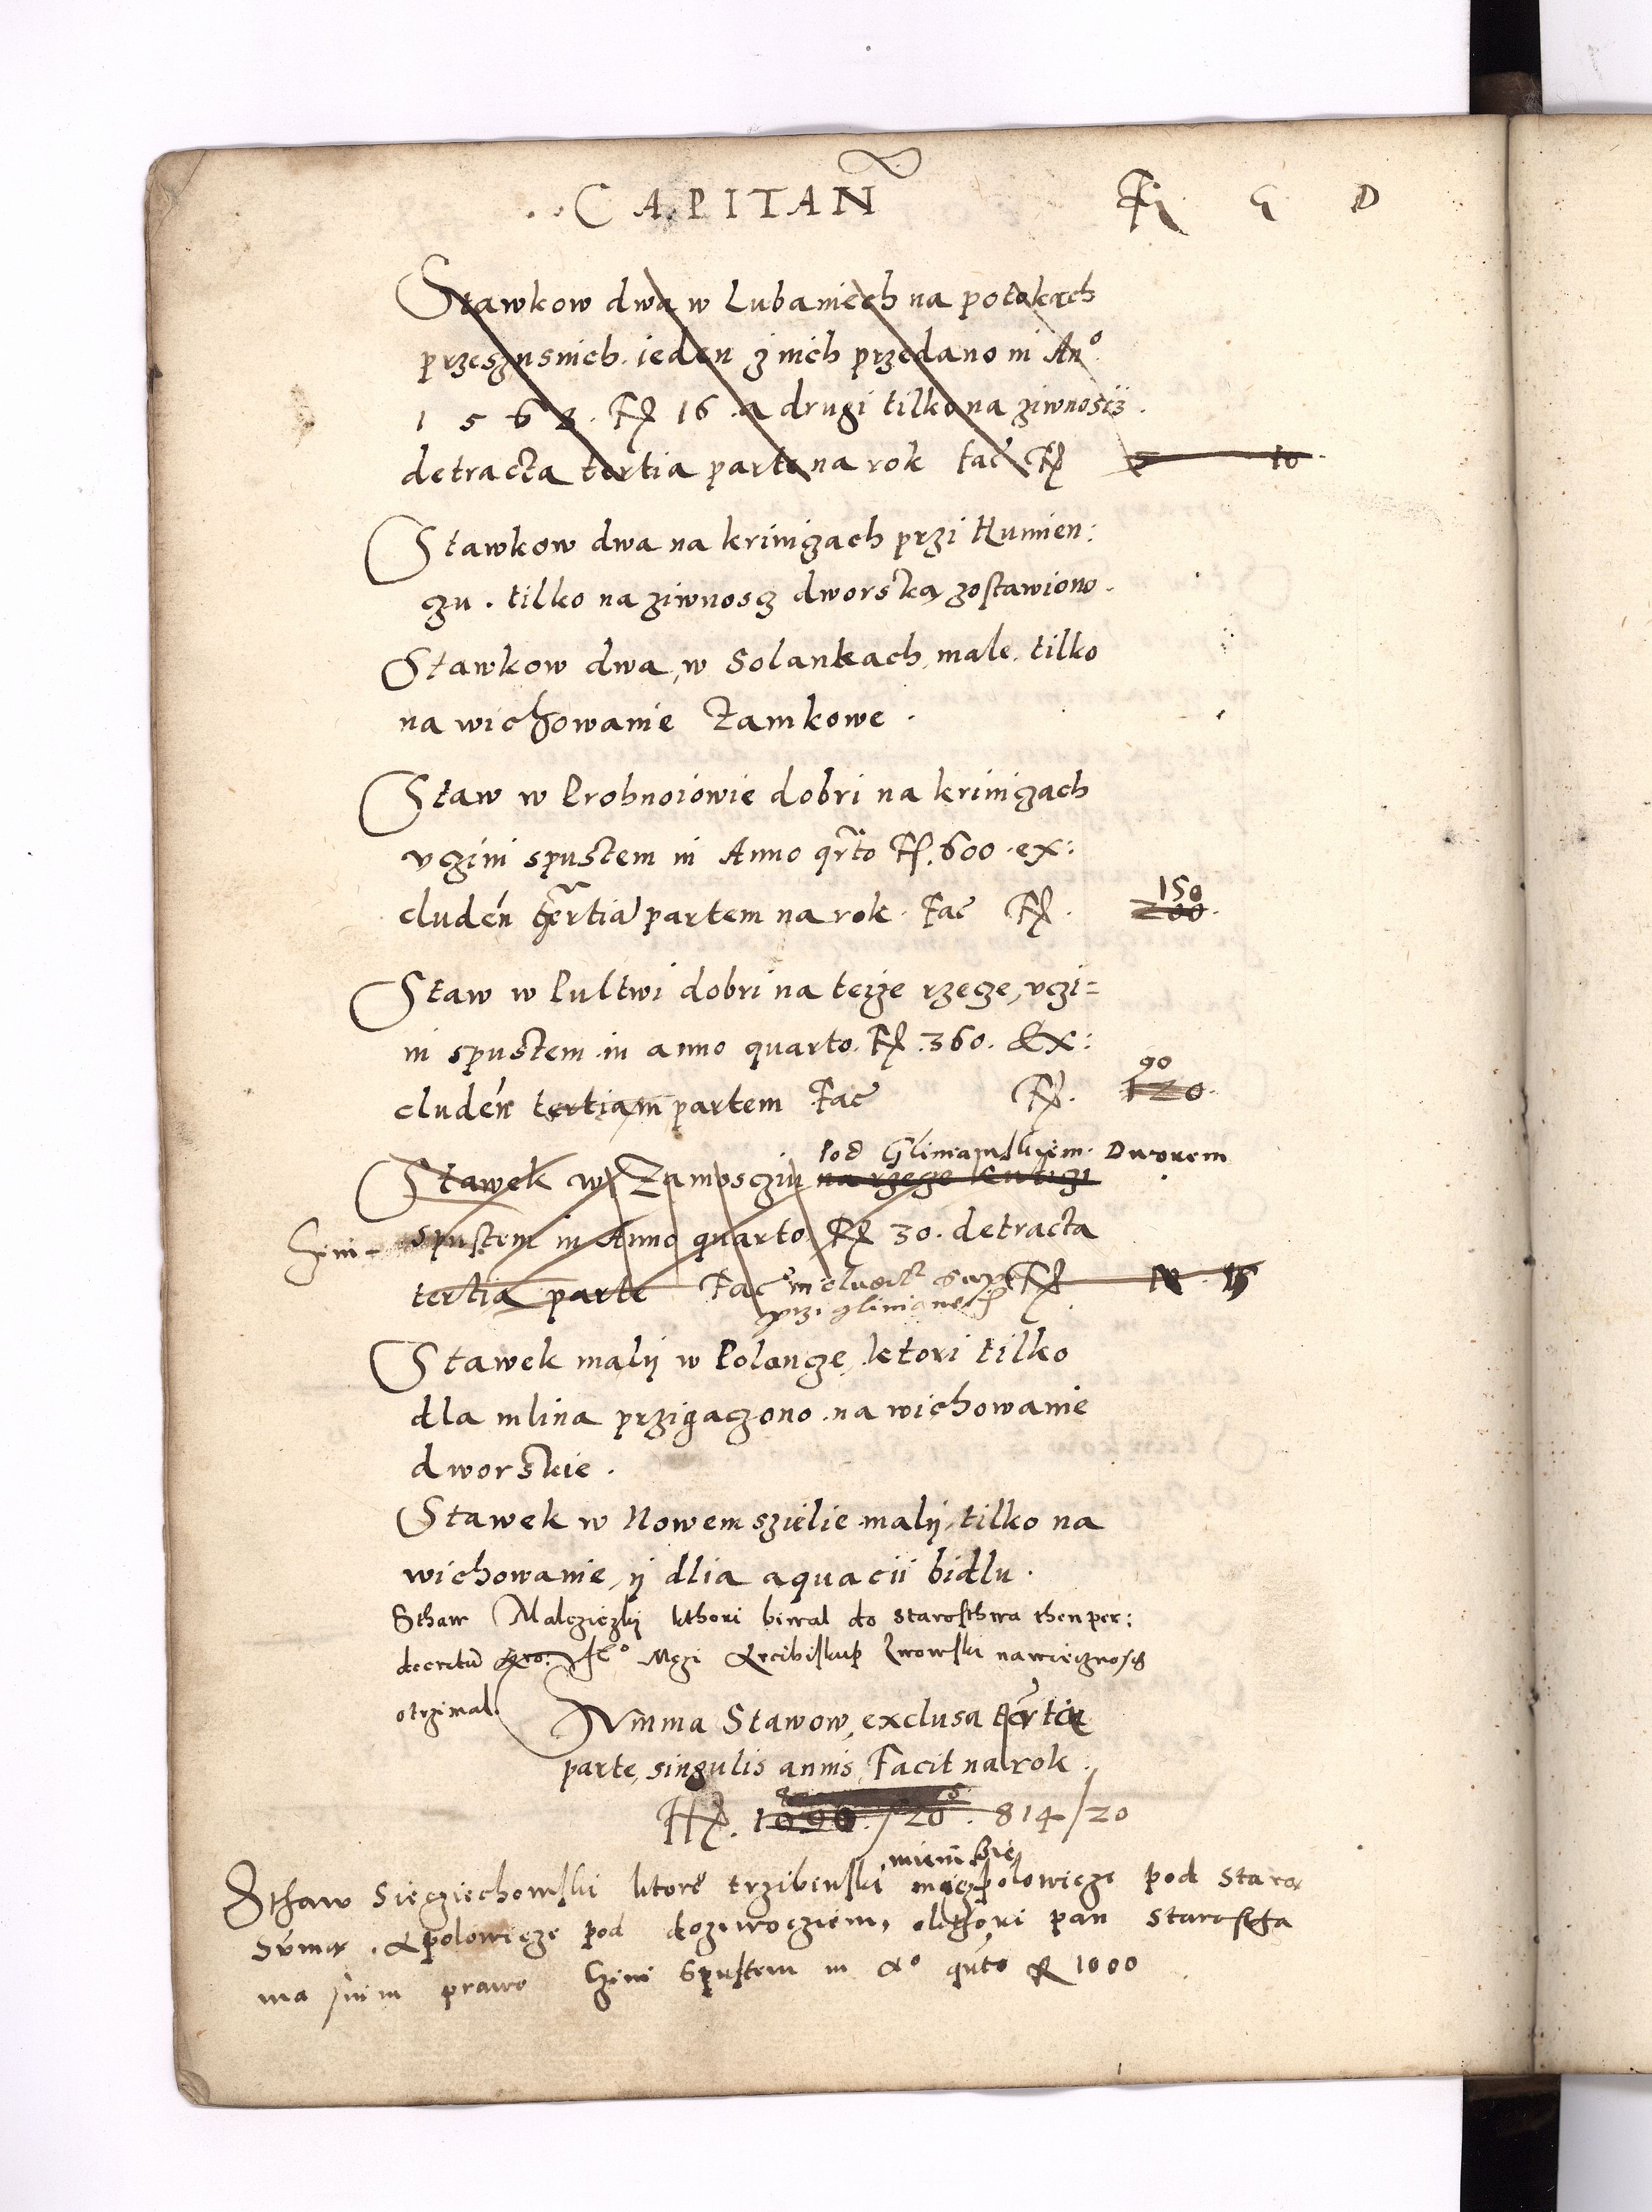 CAPITAN Fl G D
Stawkow dwa w Lubaniech na potokach
przesznsnich. ieden z nich przedano in An°
1568. Fl 16. a drugi tilko na ziwnoscz.
detracta tertia parte na rok fac Fl 5 10
Stawkow dwa na krinigach przi Humien:
czu. tilko na ziwnoscz dworską zostawiono.
Stawkow dwa, w Solankach, male. tilko
na wichowanie Zamkowe.
Staw w Prohnoiowie dobri na krinigach
vczini spustem in Anno qrto Fl. 600. ex:
cluden tertia partem na rok. Fac Fl. 150
200.
Staw w Pultwi dobri na teize rzecze, vczi=
ni spustem in anno quarto. Fl. 360. Ex:
cluden tertiam partem Fac Fl. 90
120.
Pod Glinianskiem Dworem
Stawek w Zamosciu na rzecze
czini spustem in Anno quarto Fl 30. detracta
tertia parte Fac Fl 15
przi glinianech
Stawek malÿ w Polancze, ktori tilko
dla mlina przigaczono. na wichowanie
dworskie.
Stawek w Nowem szielie malÿ, tilko na
wichowanie, ÿ dlia aquacii bidlu.
Sthaw Malczieczki kthori biwal do starosthwa then per:
decretu Je° Mczi Arcibiskup Lwowski na wiecznoscz
otrzimal.
Summa Stawow, exclusa tertia
parte, singulis annis, Facit na rok.
Fl. 1090/20. 814/20
Sthaw Siecziechowski ktore trzibenski polowicze pod staro
Suma. A polowicze pod dozywocziem, okthori pan starostha
ma snim prawo czini Spustem in A° quto Fl 1000